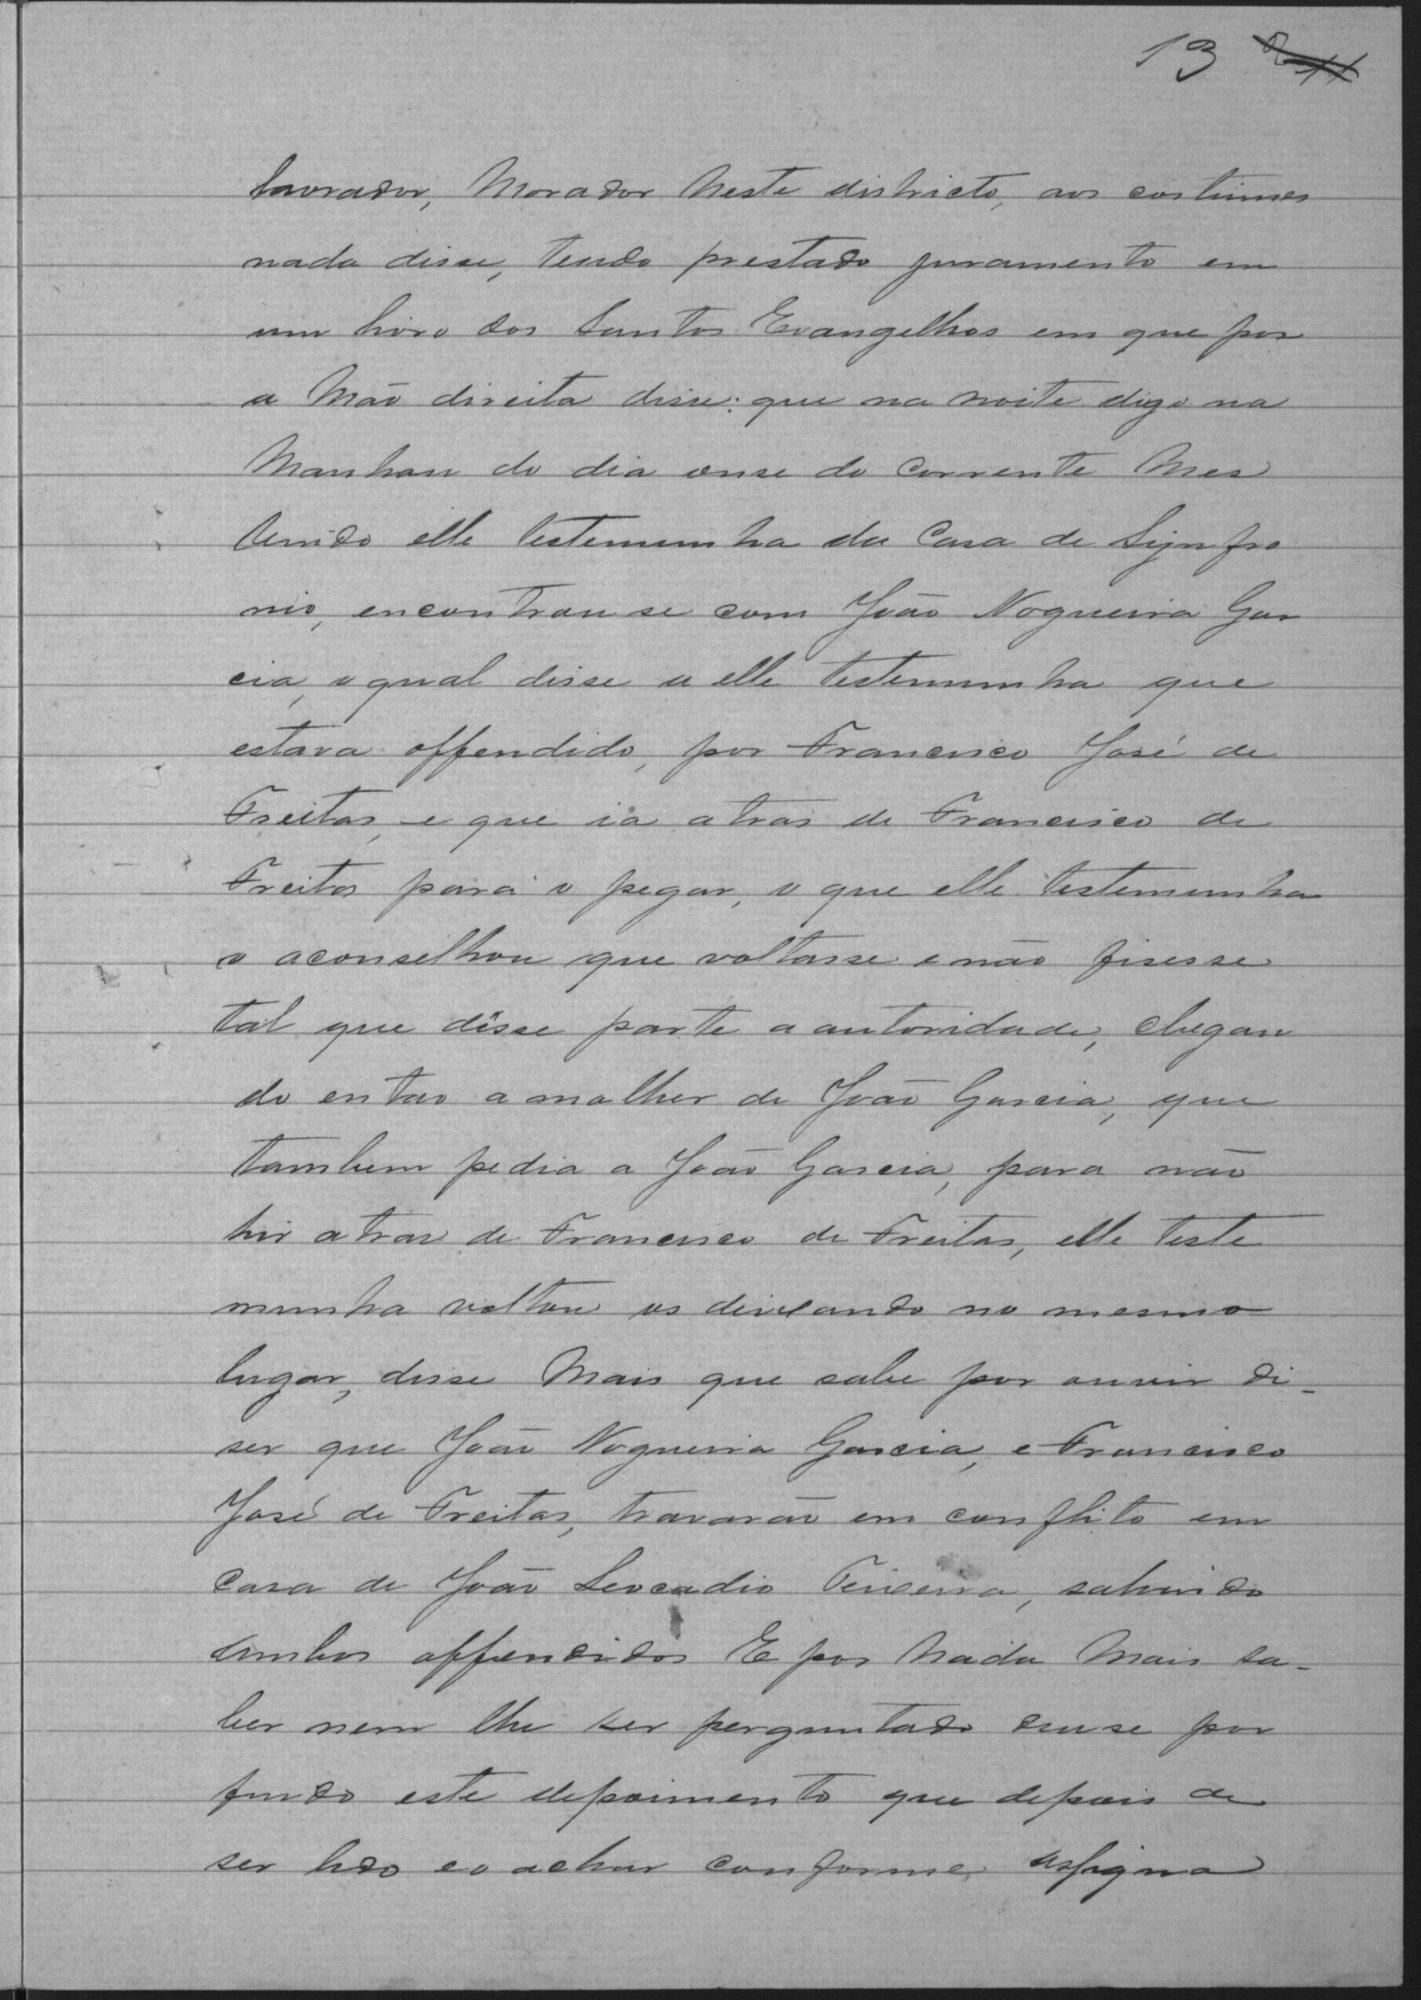 13
lavrador, Morador neste districto, aos costumes
nada disse, tendo prestado juramento em
um livro dos Santos Evangelhos em que por
a Mão direita disse: que na noite digo na
Manhan do dia onse do corrente Mes
vindo elle testemunha da Casa de Signfro
nio, encontrou se com João Nogueira Gar
cia, o qual disse a elle testemunha que
estava offendido, por Francisco José de
Freitas, e que ia atras de Francisco de
Freitas para o pegar, o que elle testemunha
o aconselhou que voltasse e não fisesse
tal que désse parte a autoridade, chegan
do entao a molher de João Garcia, que
tambem pedia a João Garcia, para não
hir atras de Francisco de Freitas, elle teste
munha voltou os deixando no mesmo
lugar, disse Mais que sabe por ouvir di-
ser que João Nogueira Garcia, e Francisco
José de Freitas, travarão em conflito em
casa de João Leocadio Teixeira, sahindo
ambos offendidos E por Nada Mais sa-
ber nem lhe ser perguntado deuse por
findo este depoimento que depois de
ser lido e o achar conforme assigna